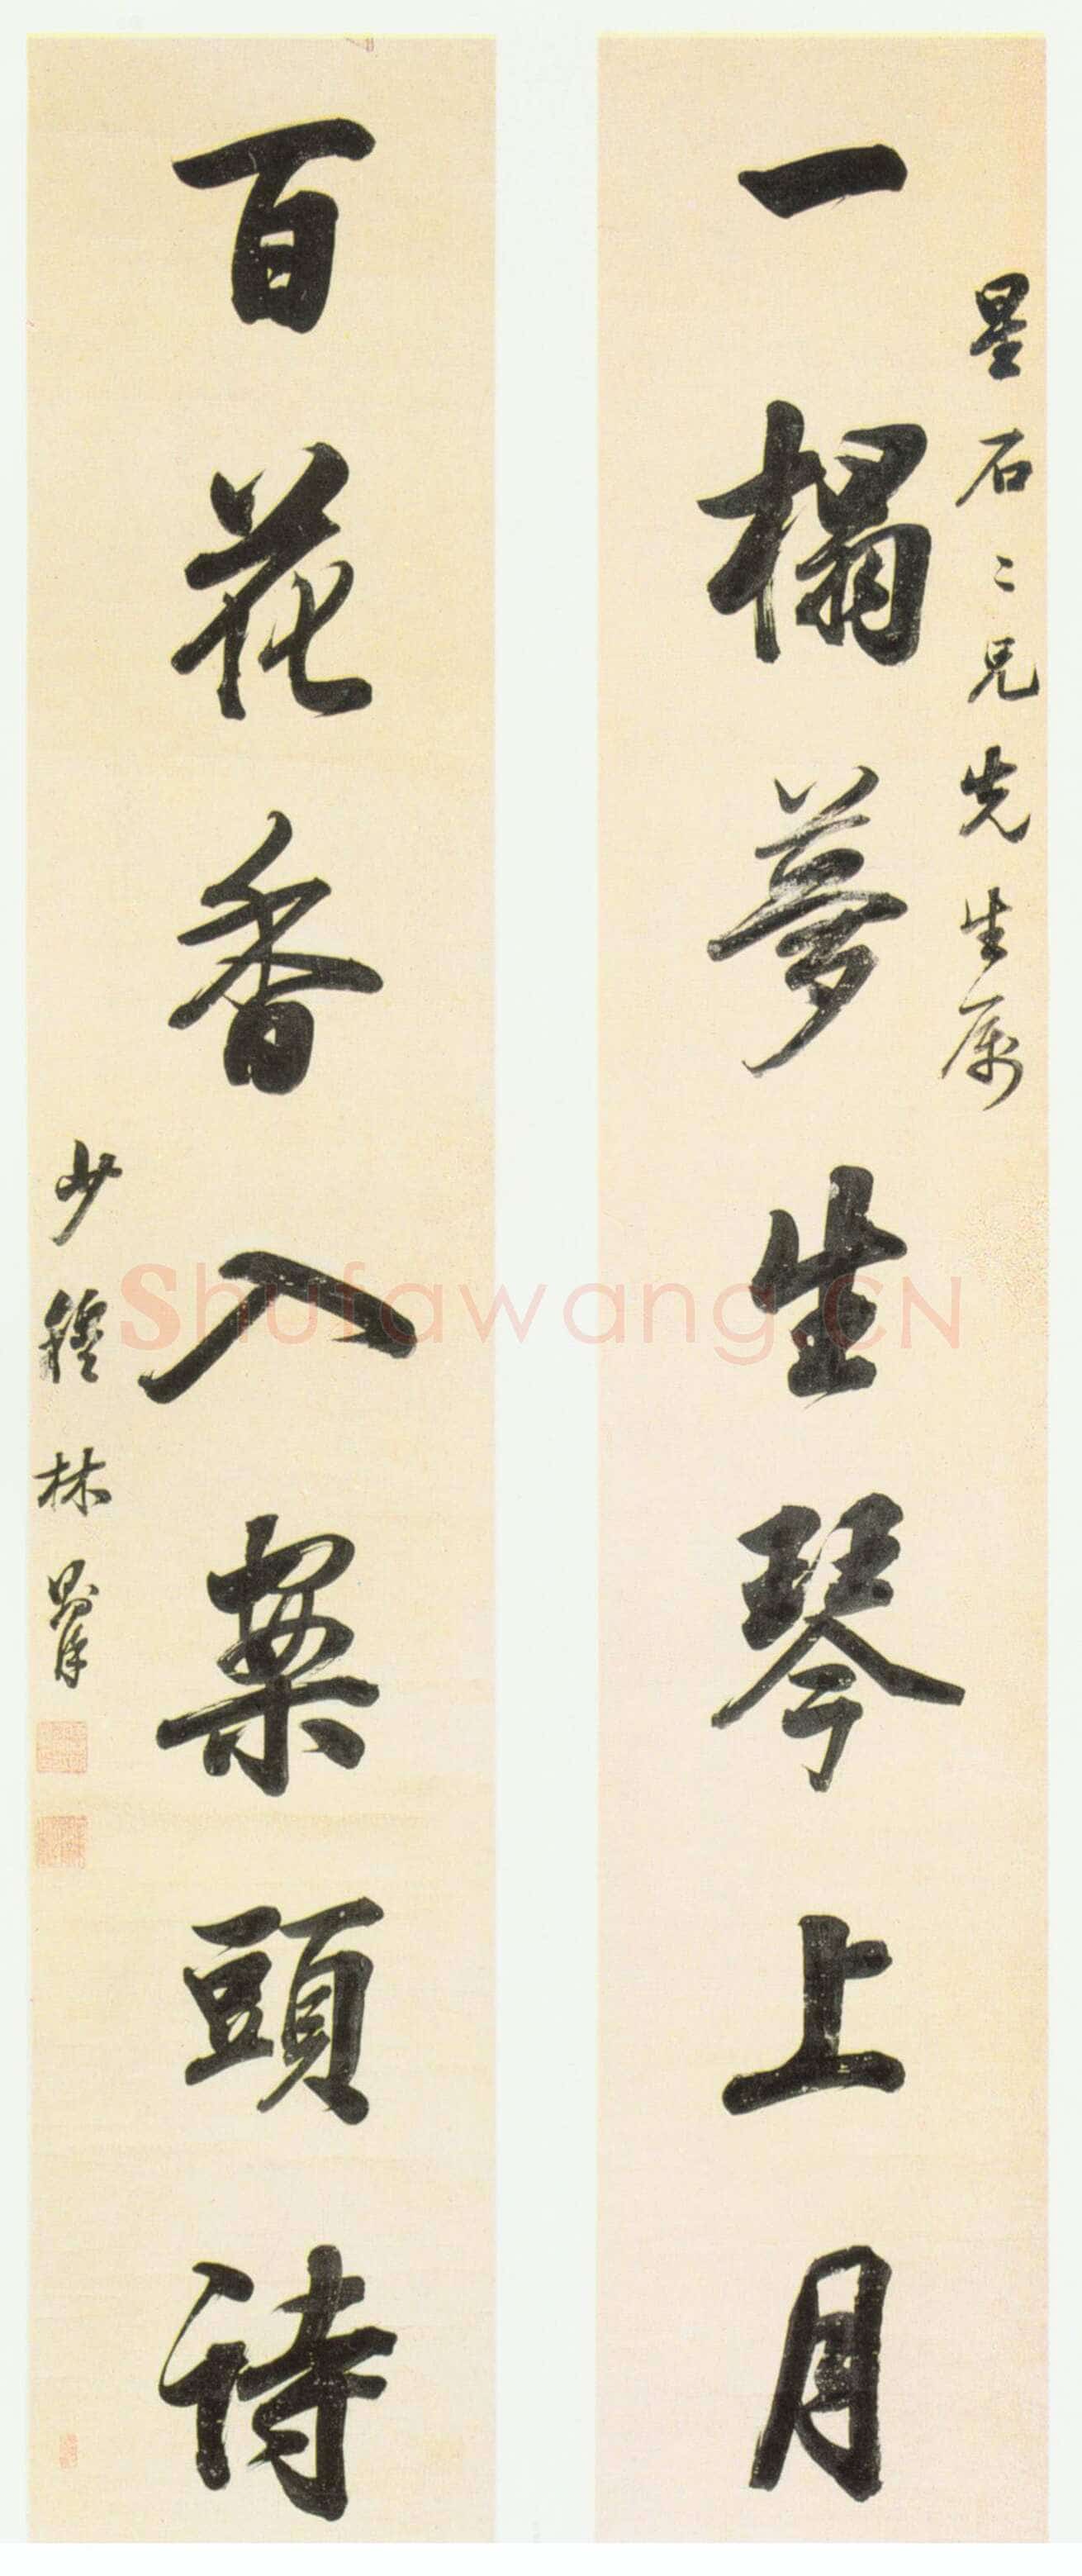 星石二兄先生属
一榻夢生琴上月
百花香入案頭詩
少穆林則徐
Shufawang.CN